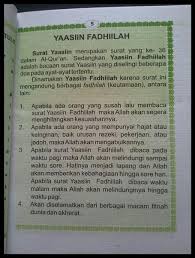 5
YAASIIN FADHIILAH
Surat Yaasiin merupakan surat yang ke- 36
dalam Al-Qur'an. Sedangkan Yaasiin Fadhiilah
adalah bacaan surat Yaasiin yang diselingi beberapa
doa pada ayat-ayat tertentu.
Dinamakan Yaasiin Fadhiilah karena surat ini
mengandung berbagai fadhilah (keutamaan), antara
lain :
1. Apabila ada orang yang susah lalu membaca
surat Yaasiin Fadhiilah maka Allah akan segera
menghilangkan kesusahannya.
2. Apabila ada orang yang mempunyai hajat atau
keinginan, baik urusan rezeki, pekerjaan atau
jodoh, maka Allah akan mengabulkannya.
3. Apabila surat Yaasiin Fadhiilah dibaca pada
waktu pagi maka Allah akan melindungi sampai
waktu sore. Hatinya menjadi lapang dan Allah
akan memberikan kebahagiaan hingga sore hari.
4. Apabila surat Yaasiin Fadhiilah dibaca waktu
malam maka Allah akan melindunginya hingga
waktu pagi.
5. Akan diselamatkan dari berbagai macam fitnah
dunia dan akherat.